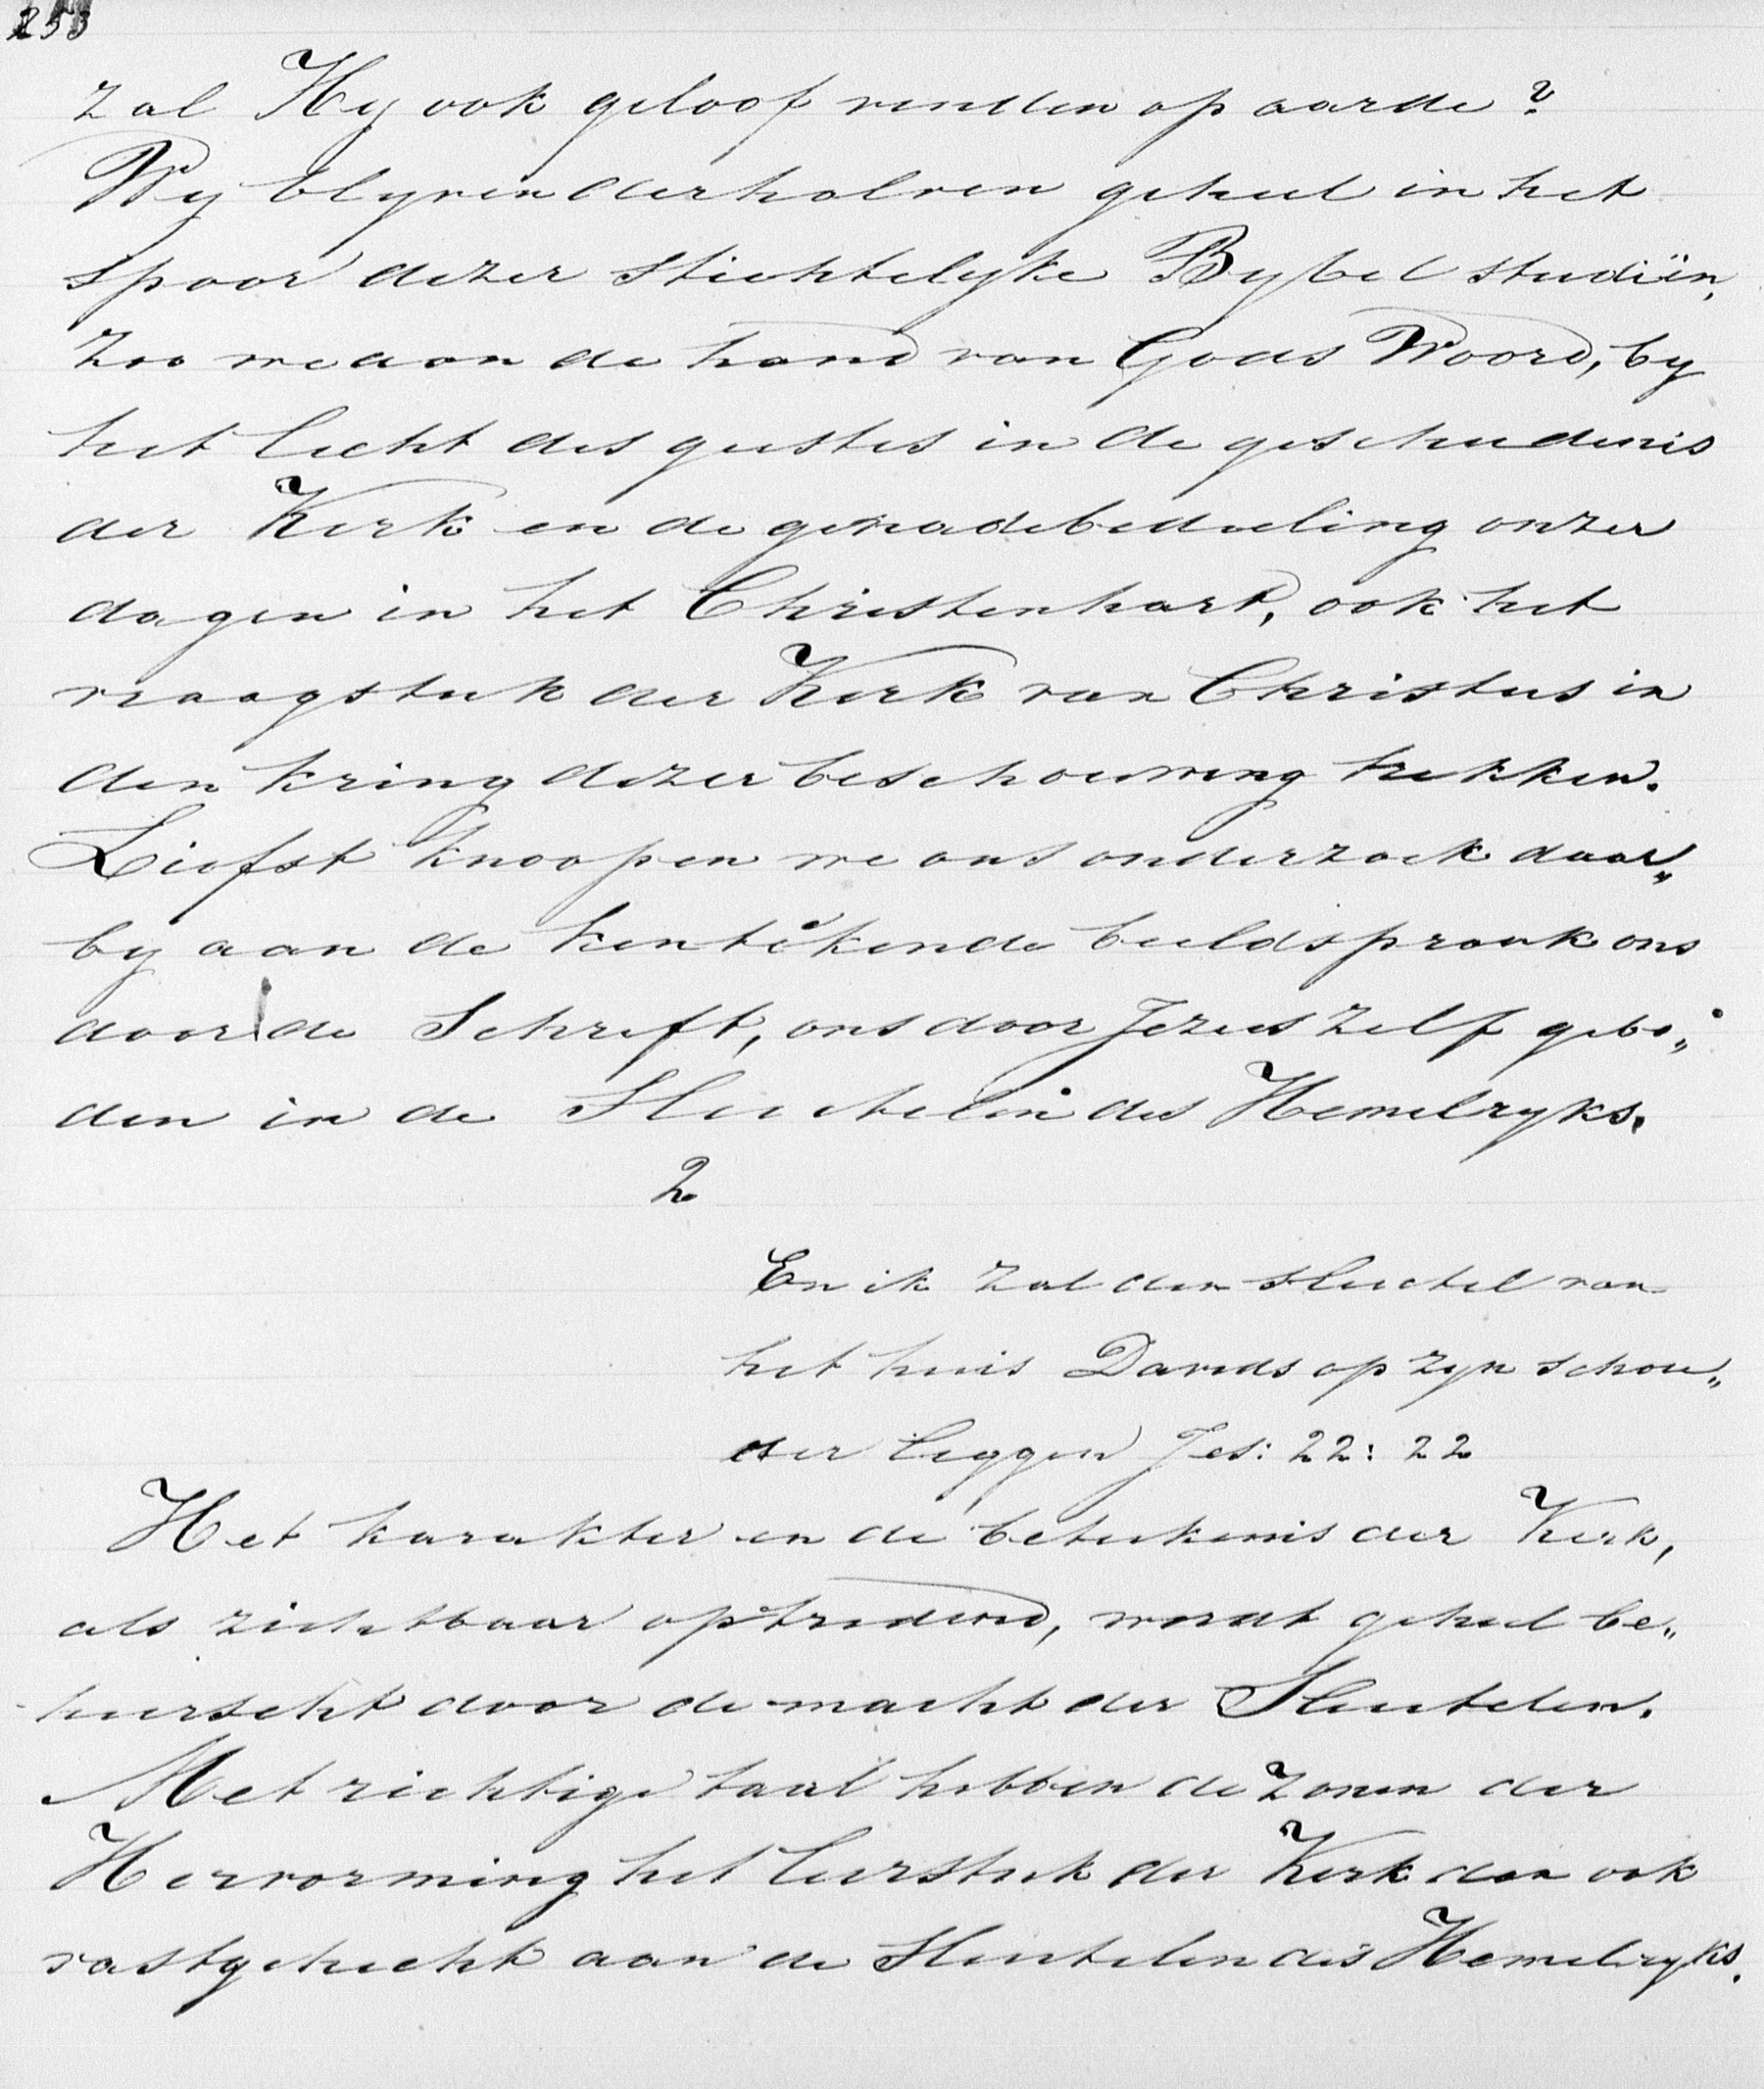 253
zal Hy ook geloof vinden op aarde?
Wy blyven derhalven geheel in het
spoor dezer stichtelyke Bybel studiën,
zoo we aan de hand van Gods Woord, by
het licht des geestes in de geschiedenis
der Kerk en de genadebedeeling onzer
dagen in het Christenhart, ook het
vraagstuk der Kerk van Christus in
den kring dezer beschouwing trekken.
Liefst knoopen we ons onderzoek daar„
by aan de kentékende beeldspraak ons
door de Schrift, ons door Jezus zelf gebo„
den in de Sleutelen des Hemelryks.
2
En ik zal den sleutel van
het huis Davids op zyn schou„
der leggen Jes: 22: 22
Het karakter en de beteekenis der Kerk,
als zichtbaar optredend, wordt geheel be„
heerscht door de macht der Sleutelen.
Met richtige taal hebben de zonen der
Hervorming het leerstuk der Kerk dan ook
vastgehecht aan de Sleutelen des Hemelryks.